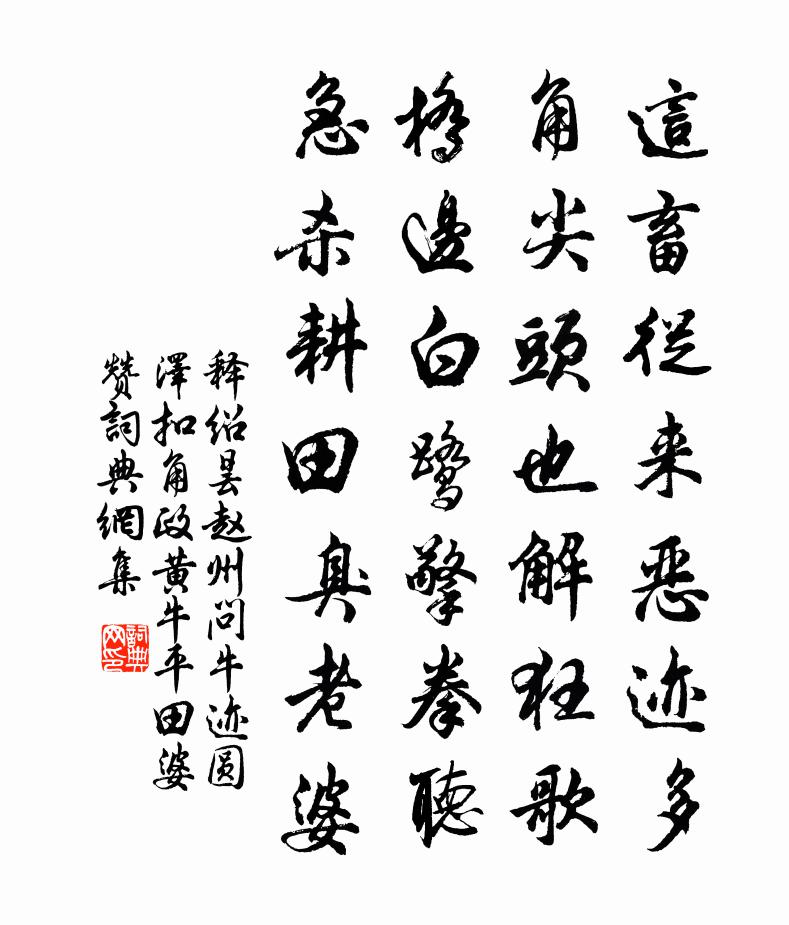 這畜從来恶迹多
角尖頭也解狂歌
橋邊白鹭擎拳聽
急杀耕田臭老婆
释绍昙赵州问牛迹圆
澤扣角政黄牛平田婆
赞詞典網集
詞典网印